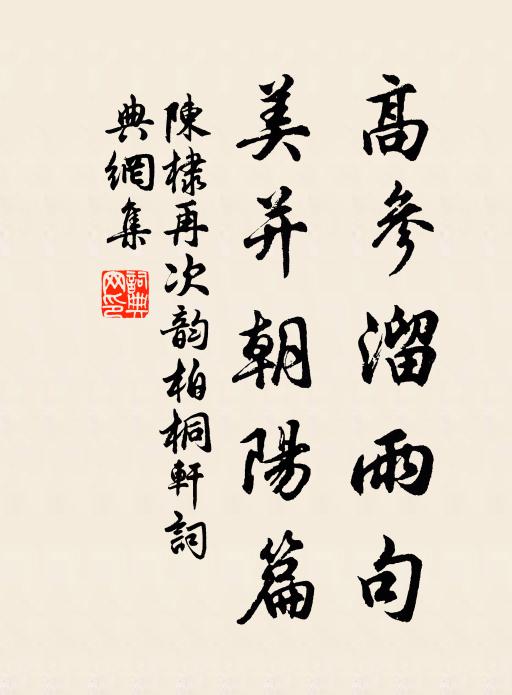 高參溜雨句
美并朝陽篇
陳棣再次韵柏桐軒詞
典網集
詞典
网印